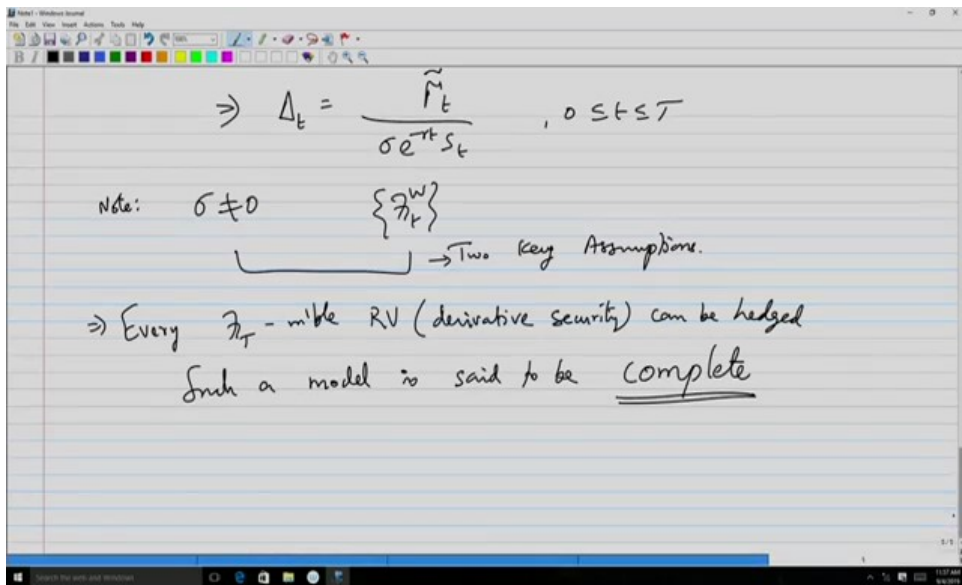 Note1 - Windows Journal
File Edit View Insert Actions Tools Help
⇒ Δ_t = Γ̃_t / σe^{-rt} S_t , 0 ≤ t ≤ T
Note: σ ≠ 0 {ℱ_t^W}
→ Two Key Assumptions.
⇒ Every ℱ_T - m'ble RV (derivative security) can be hedged
Such a model is said to be complete
5/5
Search the web and Windows
11:37 AM